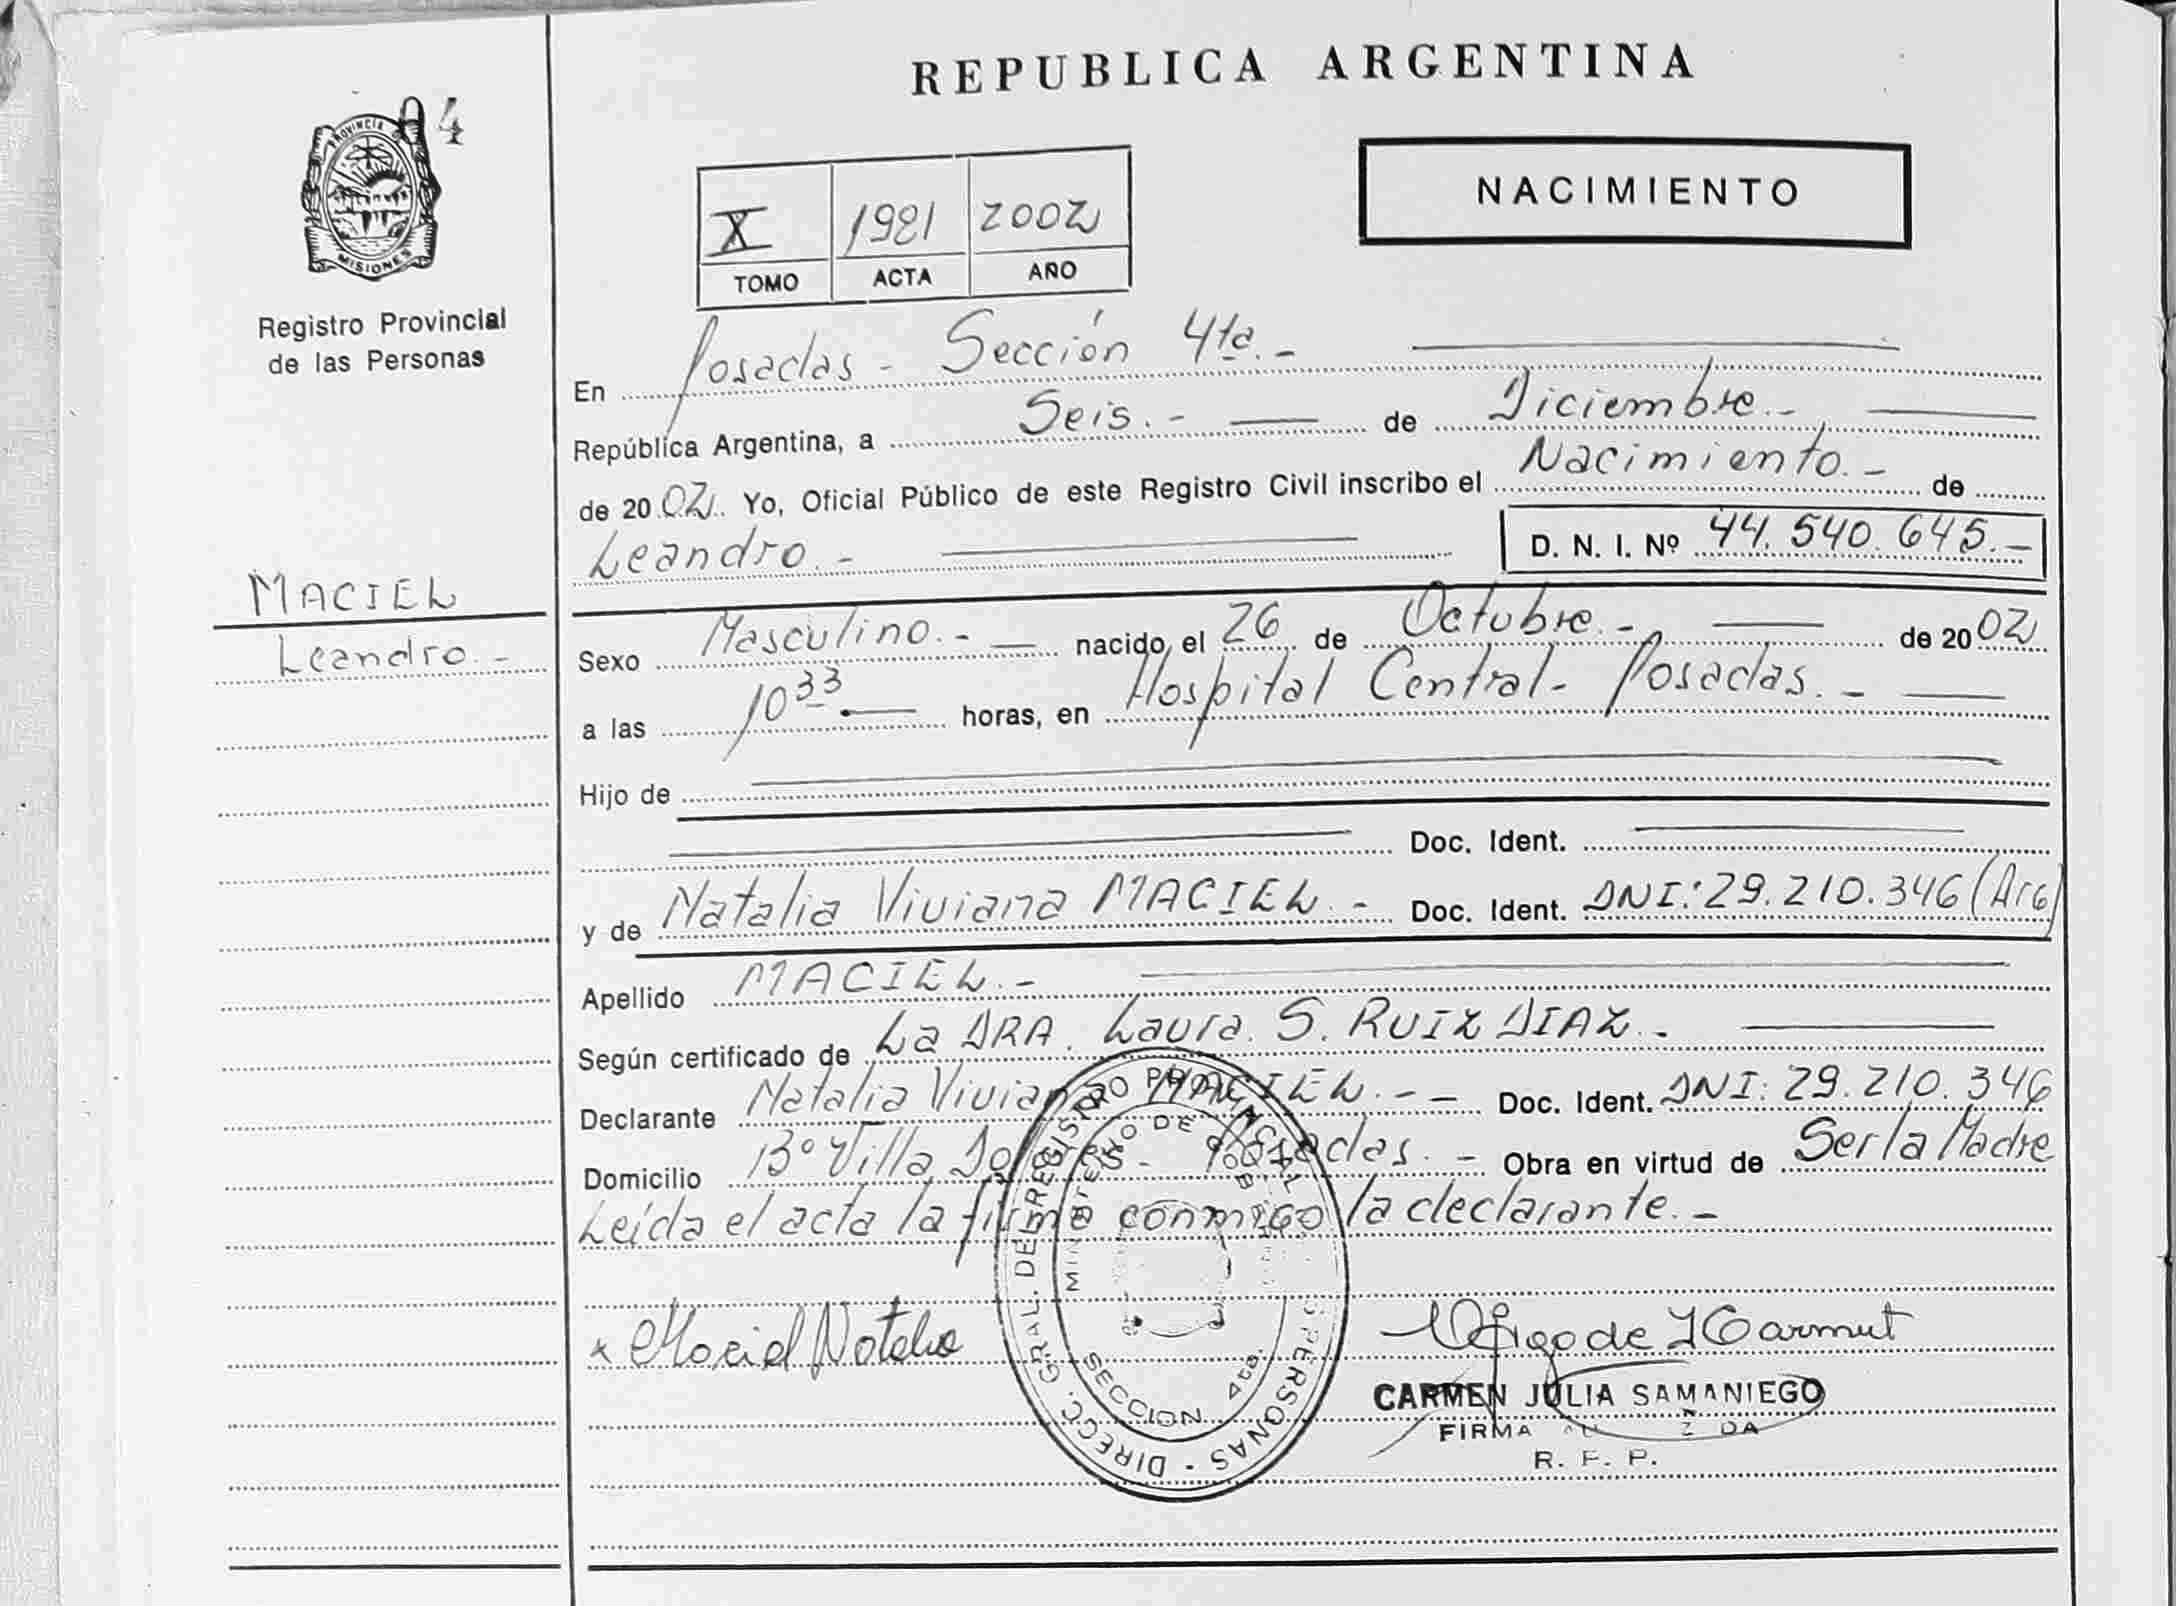 REPUBLICA ARGENTINA
04
PROVINCIA
MISIONES
Registro Provincial
de las Personas
NACIMIENTO
X 1981 2002
TOMO ACTA AÑO
En Posadas - Sección 4ta.-
República Argentina, a Seis.- de Diciembre.-
de 2002. Yo, Oficial Público de este Registro Civil inscribo el Nacimiento.- de
Leandro.- D. N. I. Nº 44.540.645.-
MACIEL
Leandro.-
Sexo Masculino.- nacido el 26 de Octubre.- de 2002
a las 10 33 horas, en Hospital Central- Posadas.-
Hijo de
Doc. Ident.
y de Natalia Viviana MACIEL.- Doc. Ident. DNI: 29.210.346 (Arg)
Apellido MACIEL.-
Según certificado de La DRA. Laura. S. RUIZ DIAZ.-
Declarante Natalia Viviana MACIEL.-- Doc. Ident. DNI: 29.210.346
Domicilio Bº Villa Dolores- Posadas.- Obra en virtud de Ser la Madre
Leída el acta la firma conmigo la declarante.-
x Maciel Natalia
CARMEN JULIA SAMANIEGO
FIRMA
R. P. P.
DIRECC. GRAL. DEL REGISTRO PROVINCIAL PERSONAS
MINISTERIO DE GOB
SECCION 4ta